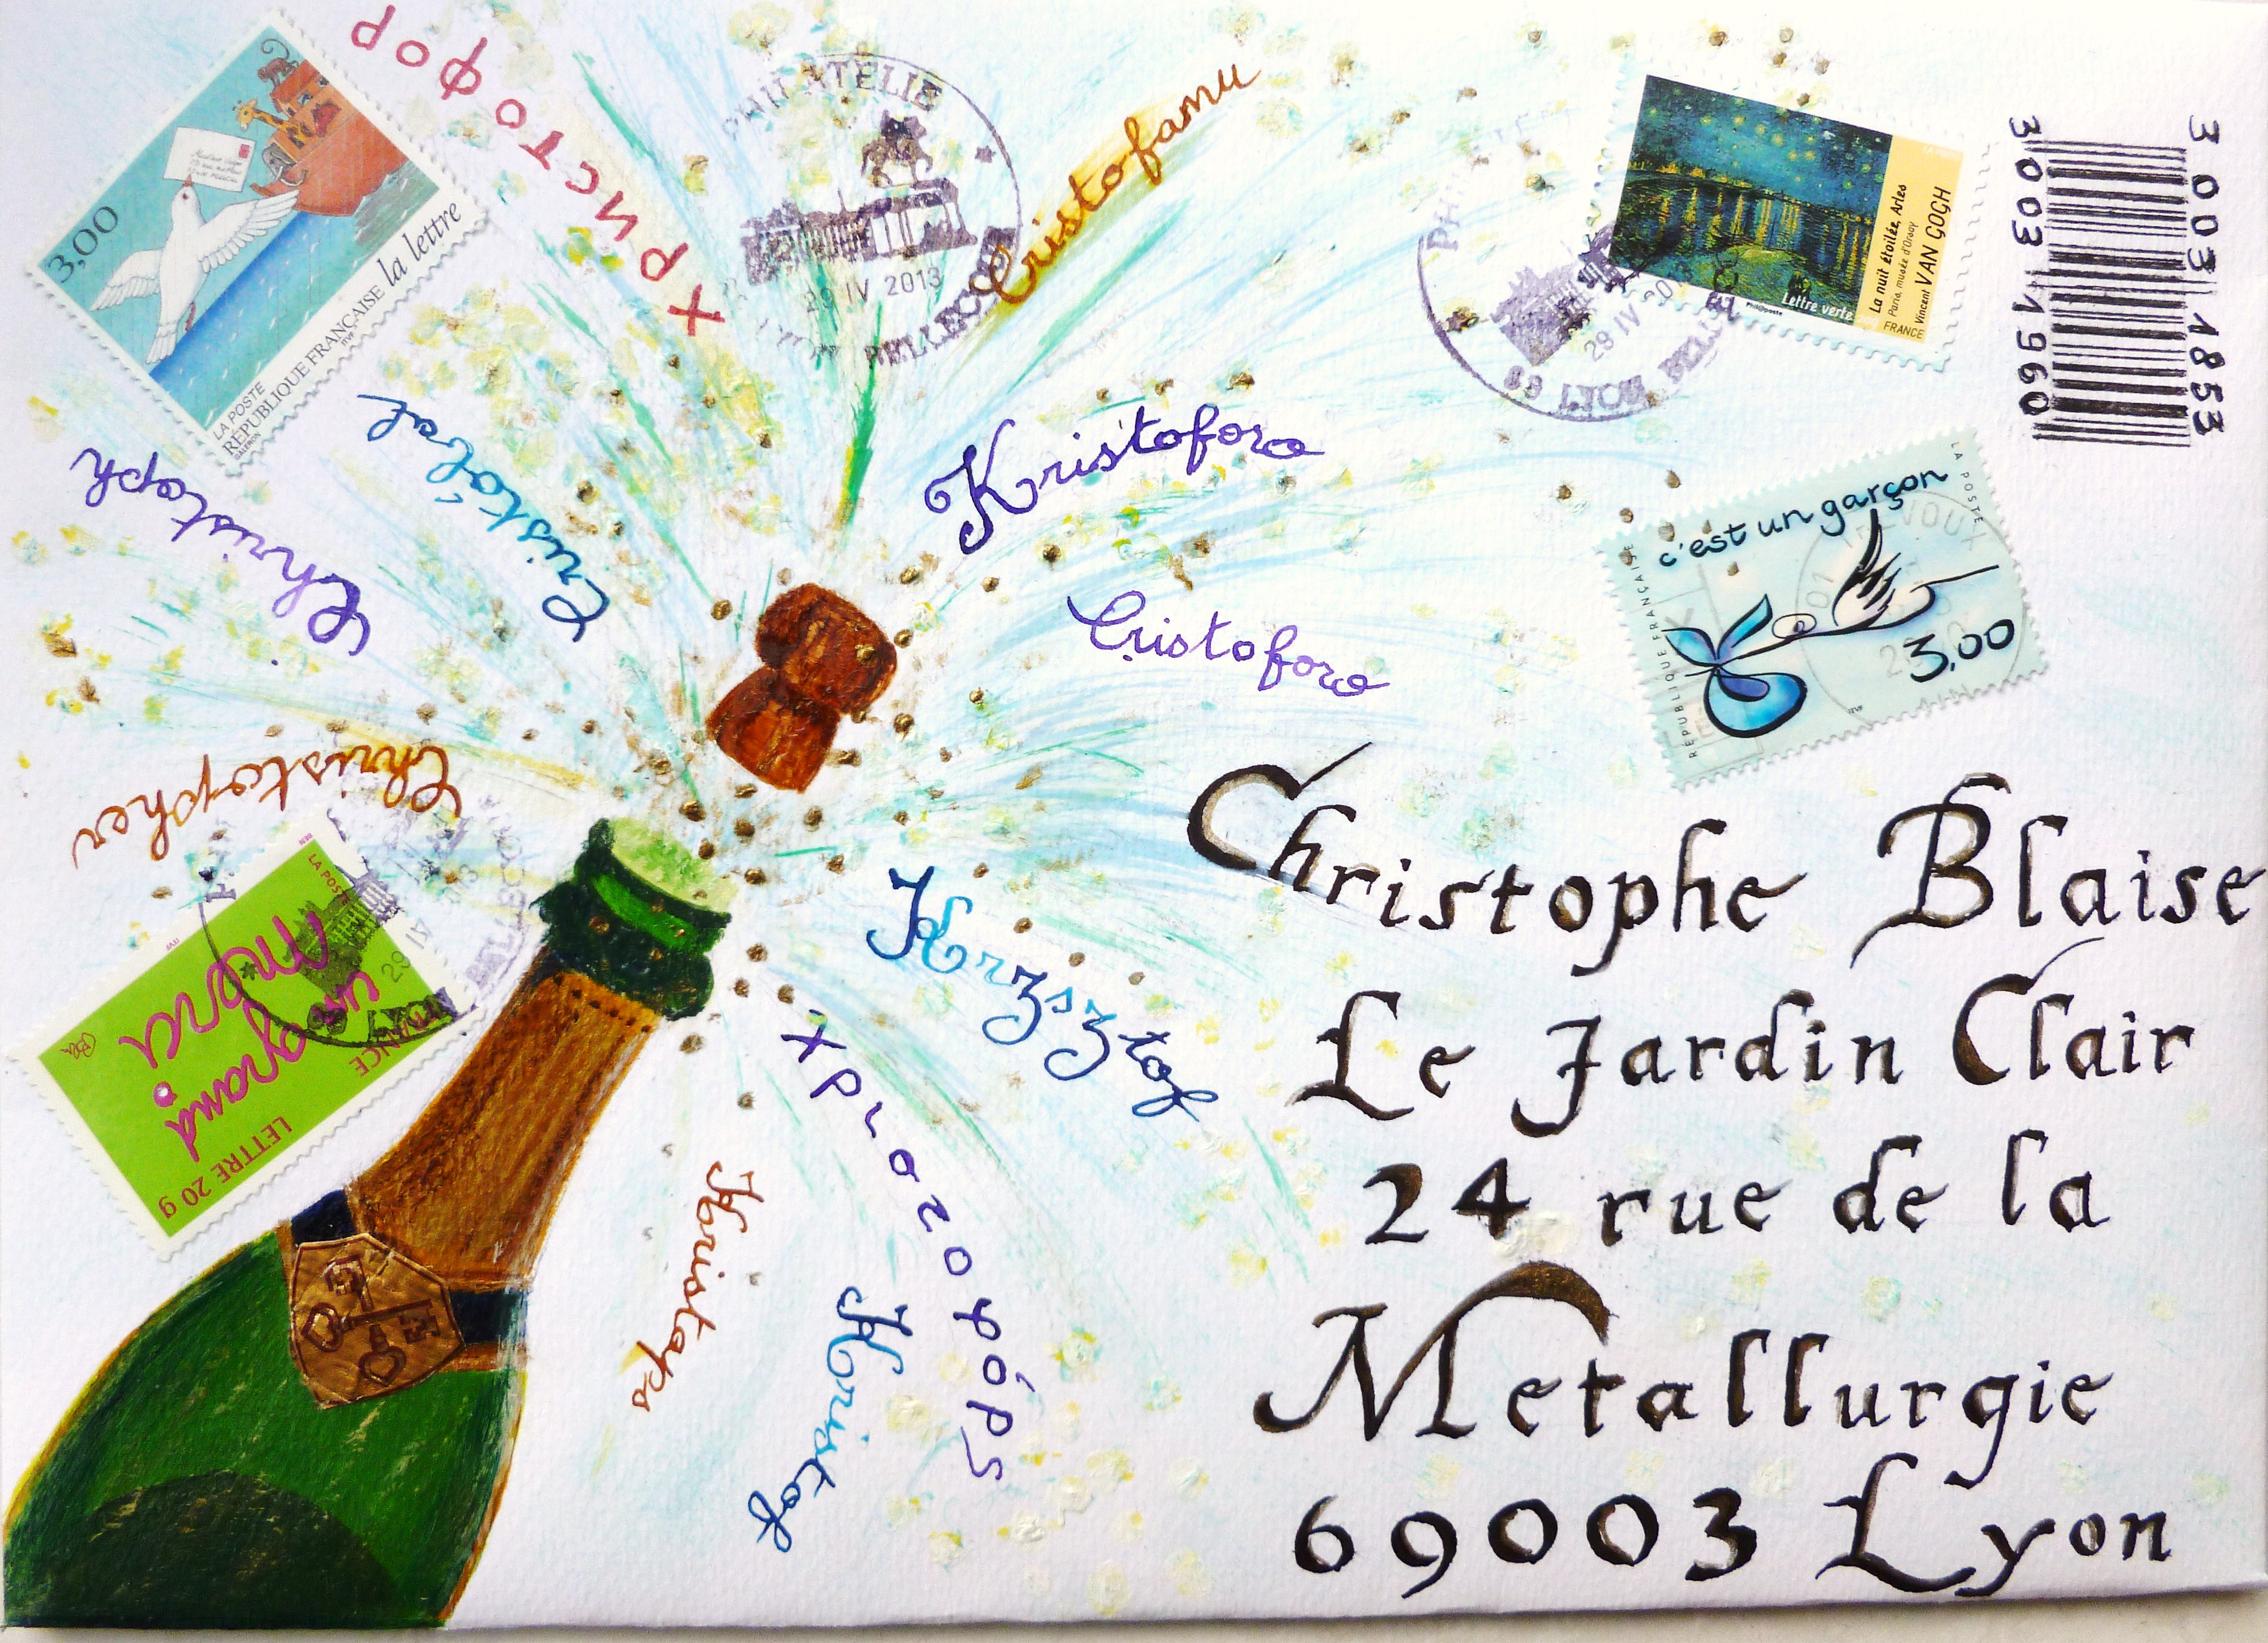 христофор
3,00
la lettre
RÉPUBLIQUE FRANÇAISE
LA POSTE
ITVF
PHILATELIE
29 IV 2013
BELLECOUR
Cristofanu
29 IV 201
69 LYON BELLE
La nuit étoilée, Arles
Paris, musée d'Orsay
Vincent VAN GOGH
Lettre verte
Phil@poste
FRANCE
3 003 1853
3 003 1960
Christoph
Cristóbal
Kristoforo
Cristoforo
c'est un garçon
3,00
RÉPUBLIQUE FRANÇAISE
LA POSTE
ITVF
Christopher
LA POSTE
un grand
merci
FRANCE
LETTRE 20 g
29 IV
Krzsztof
Χριστοφόρς
Kristaps
Kristof
Christophe Blaise
Le Jardin Clair
24 rue de la
Metallurgie
69003 Lyon